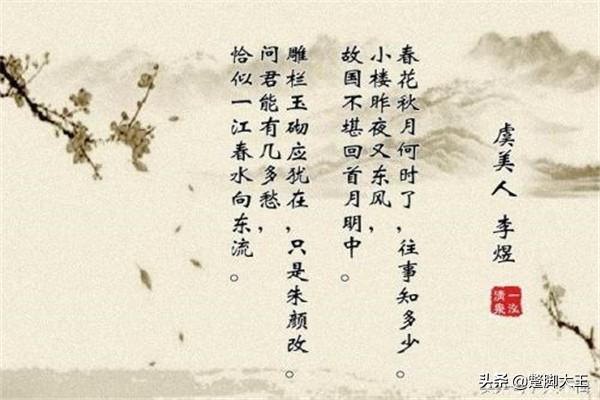 虞美人 李煜
春花秋月何时了，往事知多少。
小楼昨夜又东风，
故国不堪回首月明中。
雕栏玉砌应犹在，只是朱颜改。
问君能有几多愁，
恰似一江春水向东流。
一泓清泉
头条 @蹩脚大王